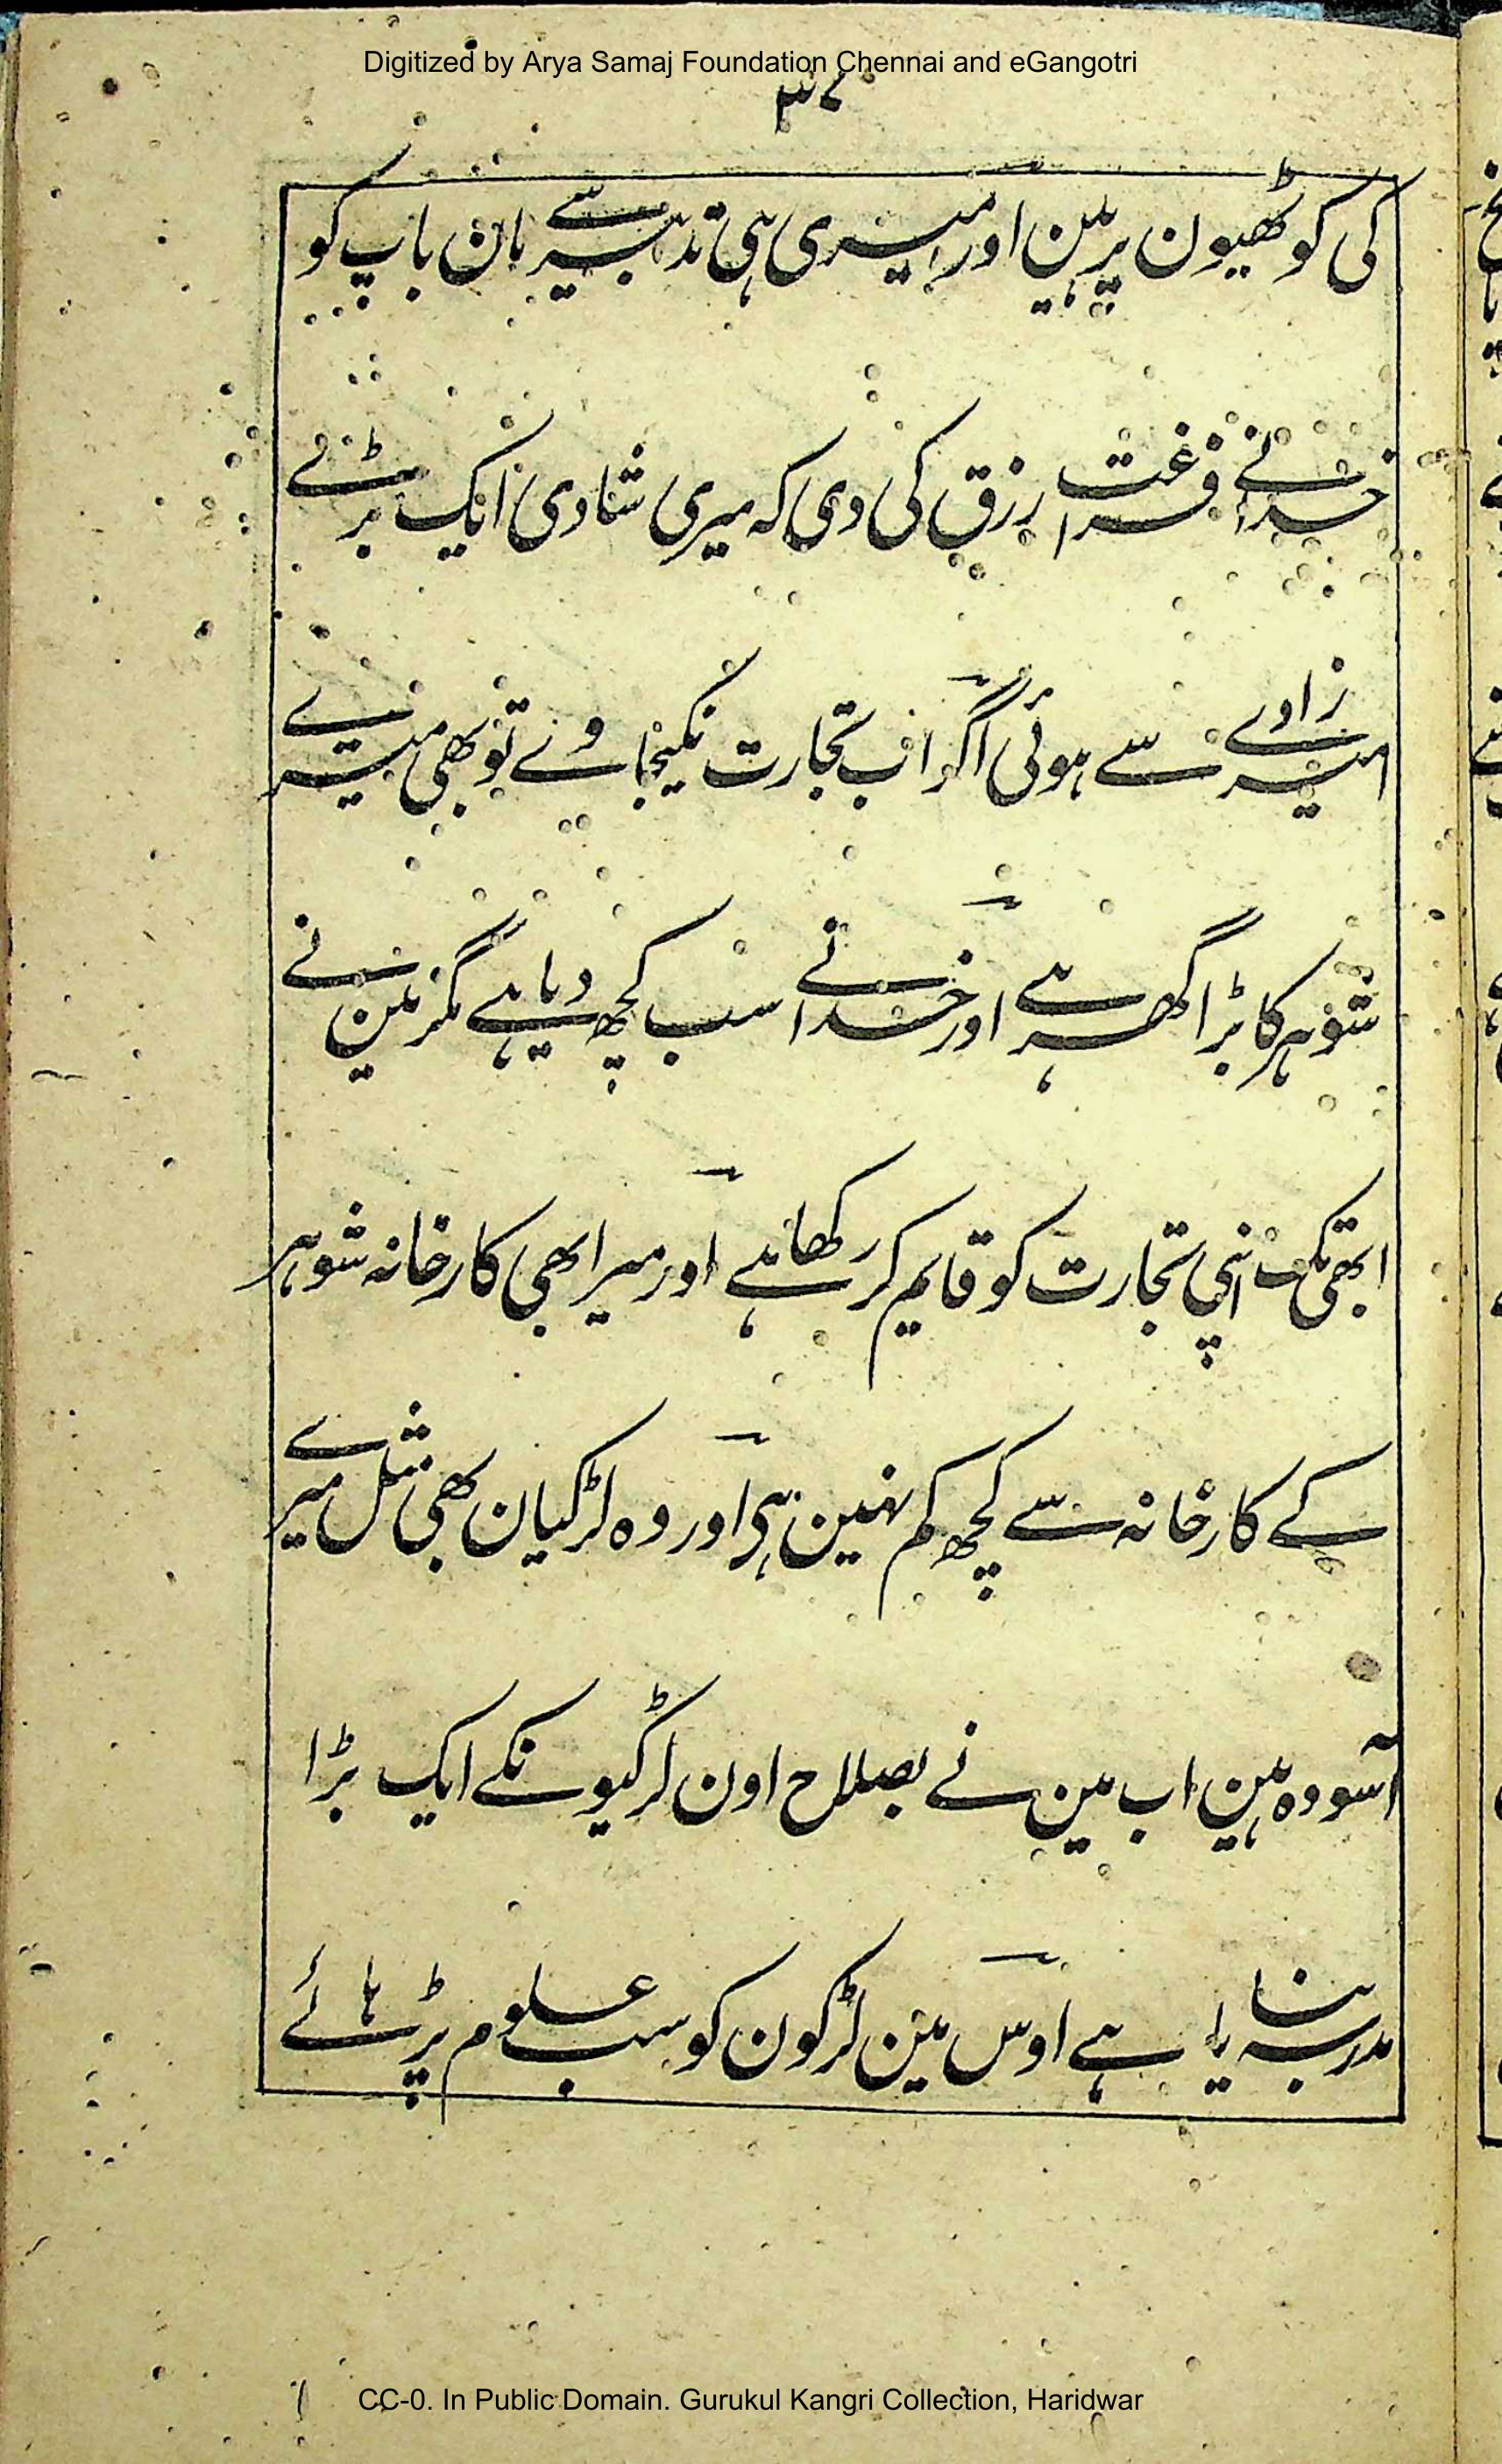 Digitized by Arya Samaj Foundation Chennai and eGangotri
۳۷
کی کوٹھیون پر ہین اور میری ہی تدبیر سے مان باپ کو
خدا نے فراغت رزق کی دی کہ میری شادی ایک بڑے
امیر زادے سے ہوئی اگر اب تجارت نکیجاوے تو بھی میرے
شوہر کا بڑا گھر ہے اور خدا نے سب کچھ دیا ہے مگر مین نے
ابھی تک اپنی تجارت کو قایم کر رکھا ہے اور میرا بھی کارخانہ شوہر
کے کارخانہ سے کچھ کم نہین ہی اور وہ لڑکیان بھی مثل میرے
آسودہ ہین اب مین نے بصلاح اون لڑکیونکے ایک بڑا
مدرسہ بنایا ہے اوس مین لڑکون کو سب علوم پڑہائے
CC-0. In Public Domain. Gurukul Kangri Collection, Haridwar